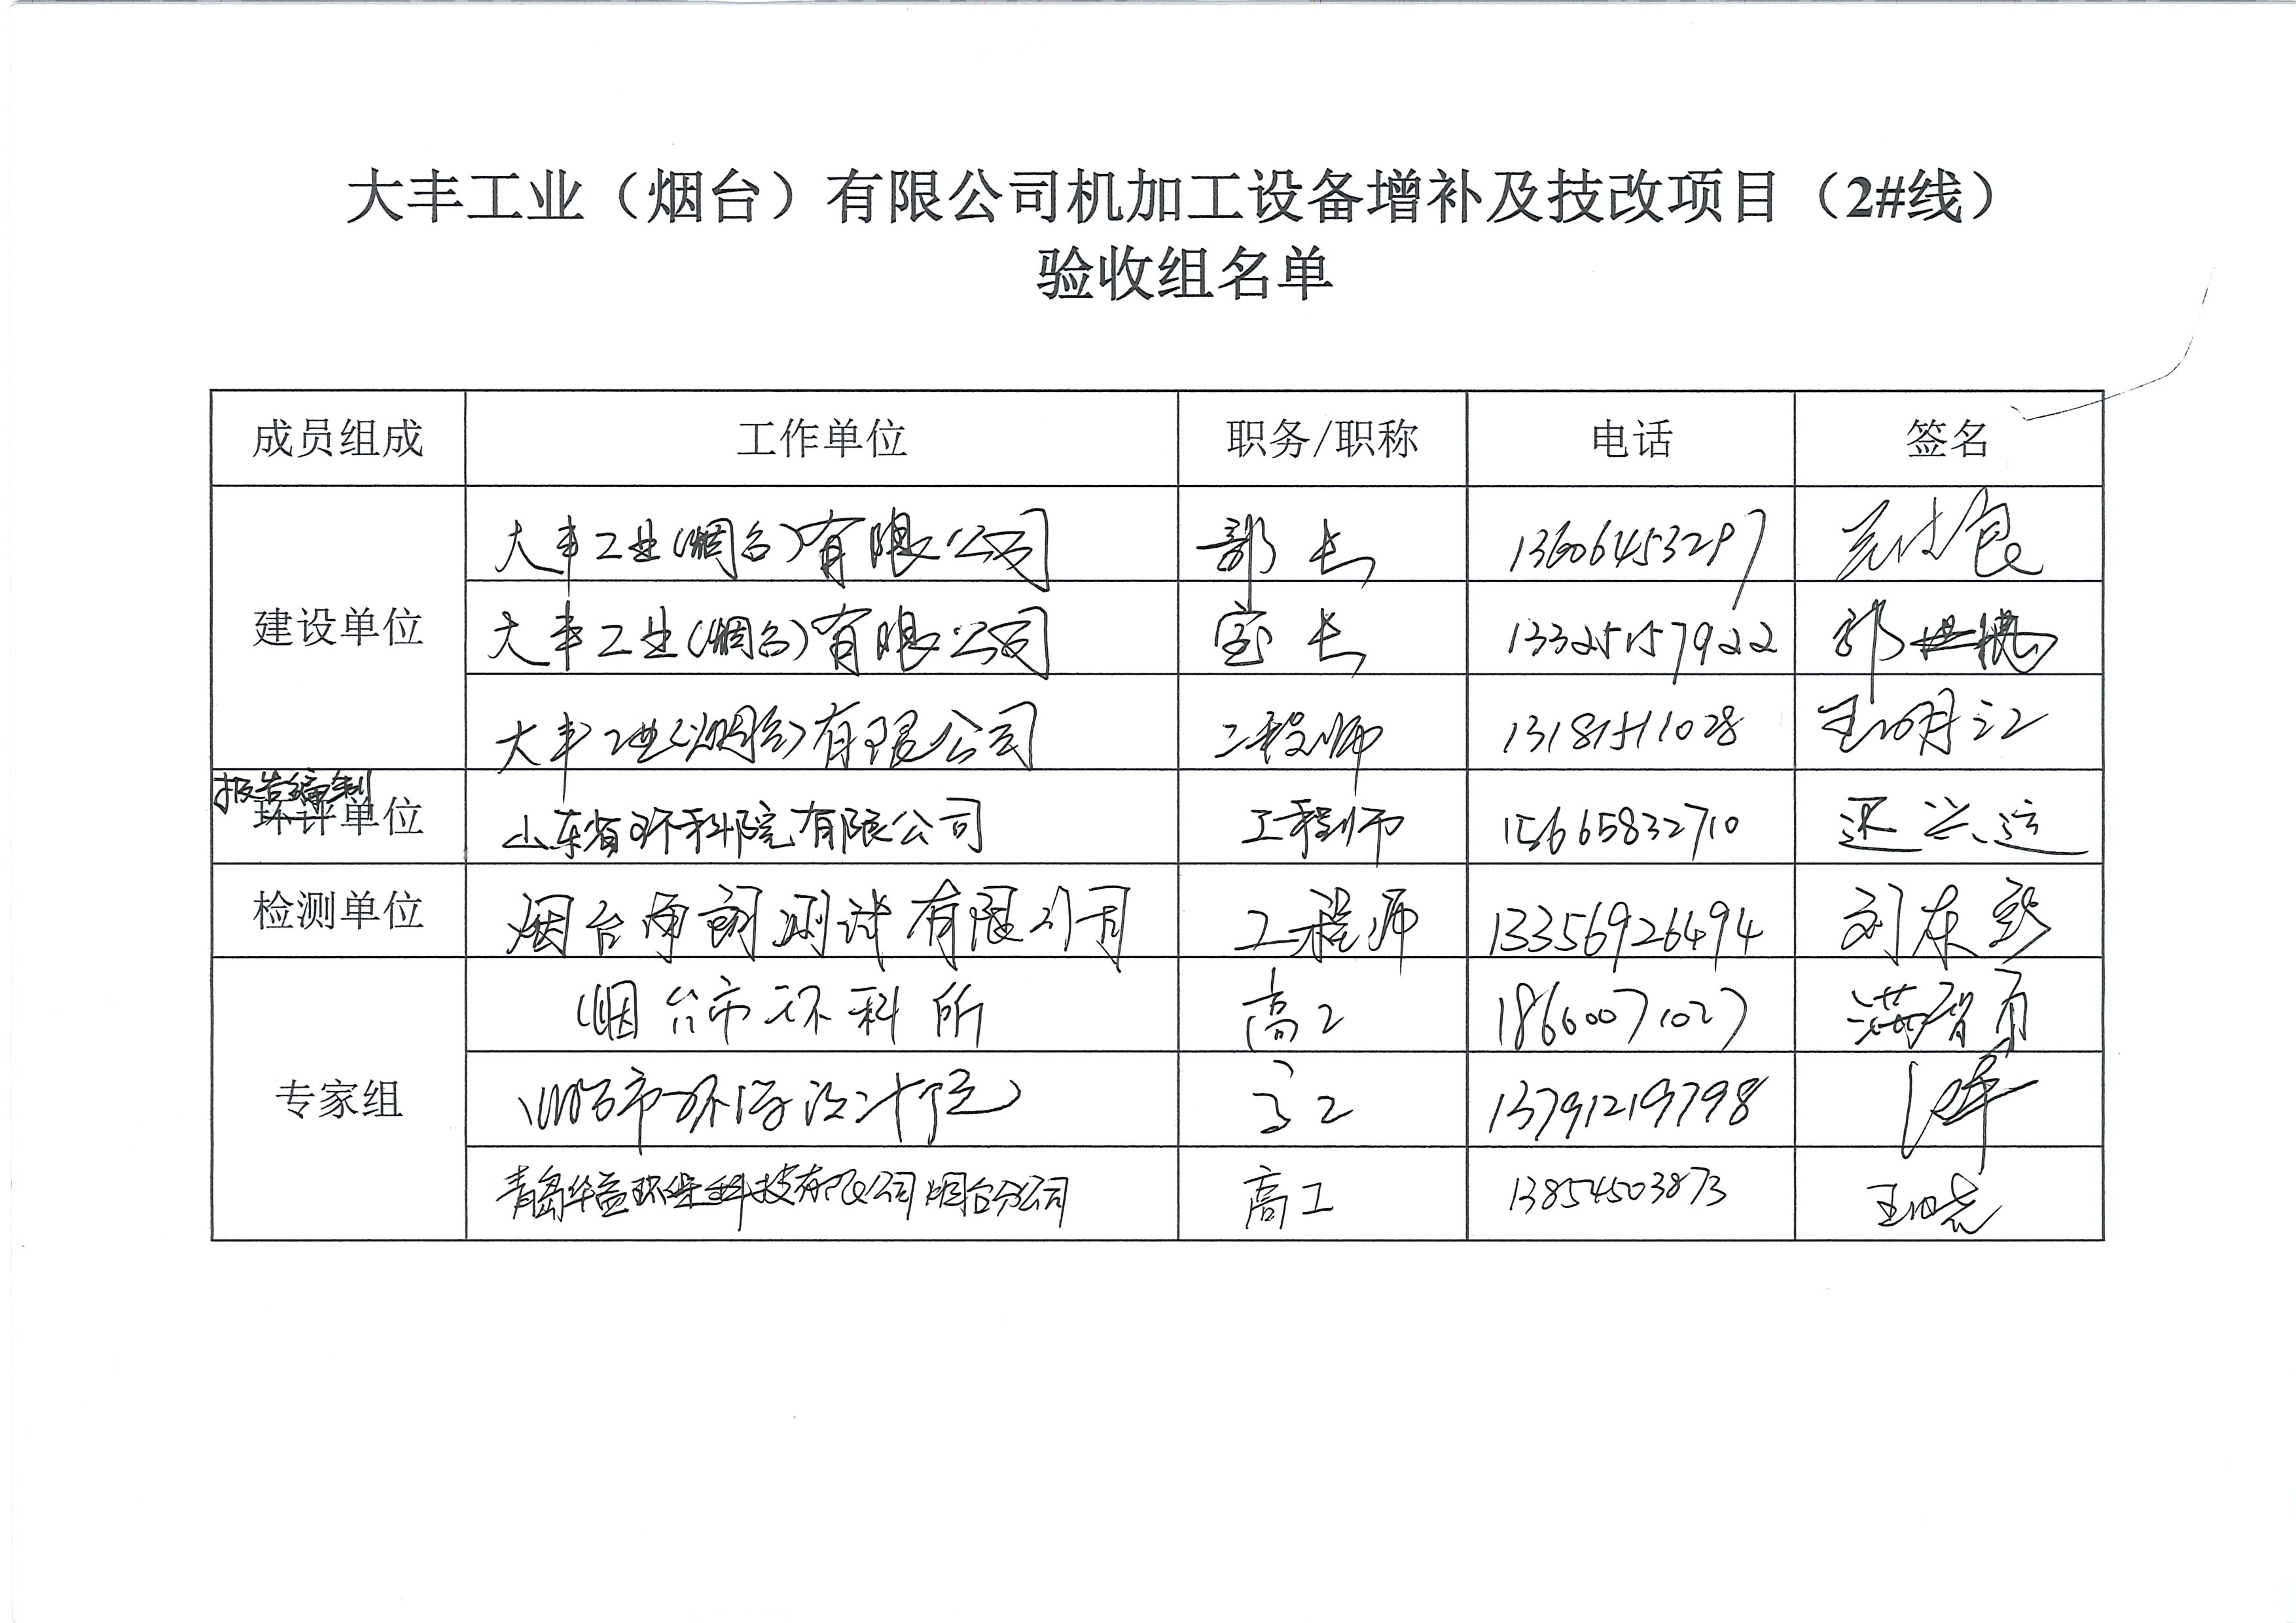 大丰工业（烟台）有限公司机加工设备增补及技改项目（2#线）
验收组名单
成员组成 工作单位 职务/职称 电话 签名
建设单位
大丰工业(烟台)有限公司 部长 13606453297
大丰工业(烟台)有限公司 室长 13325157922 郭世
大丰工业(烟台)有限公司 工程师 13181511028 王明江
报告编制
环评单位 山东省环科院有限公司 工程师 15665832710 兴运
检测单位 烟台 测试有限公司 工程师 13356926494 刘东
专家组
烟台市环科所 高工 18660071027 满智勇
烟台市环 设计院 高工 13791219798
青岛华益环保科技有限公司烟台分公司 高工 13854503873 王晓